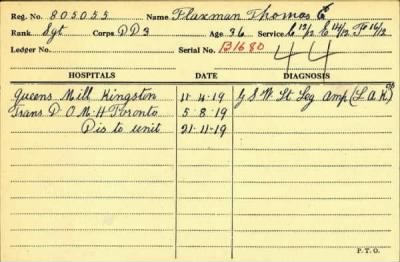 Reg. No. 805055 Name Flaxman Thomas E
Rank. Sgt Corps DD3 Age 36 Service. C 12/12 E 14/12 Fr 16/12
Ledger No. Serial No. B1680 44
HOSPITALS DATE DIAGNOSIS
Queens Mill Kingston 11-4-19 G S W Lt Leg Amp (L.A.K)
Trans D.O.M.H Toronto 5-8-19
Dis to unit 21-11-19
P. T. O.